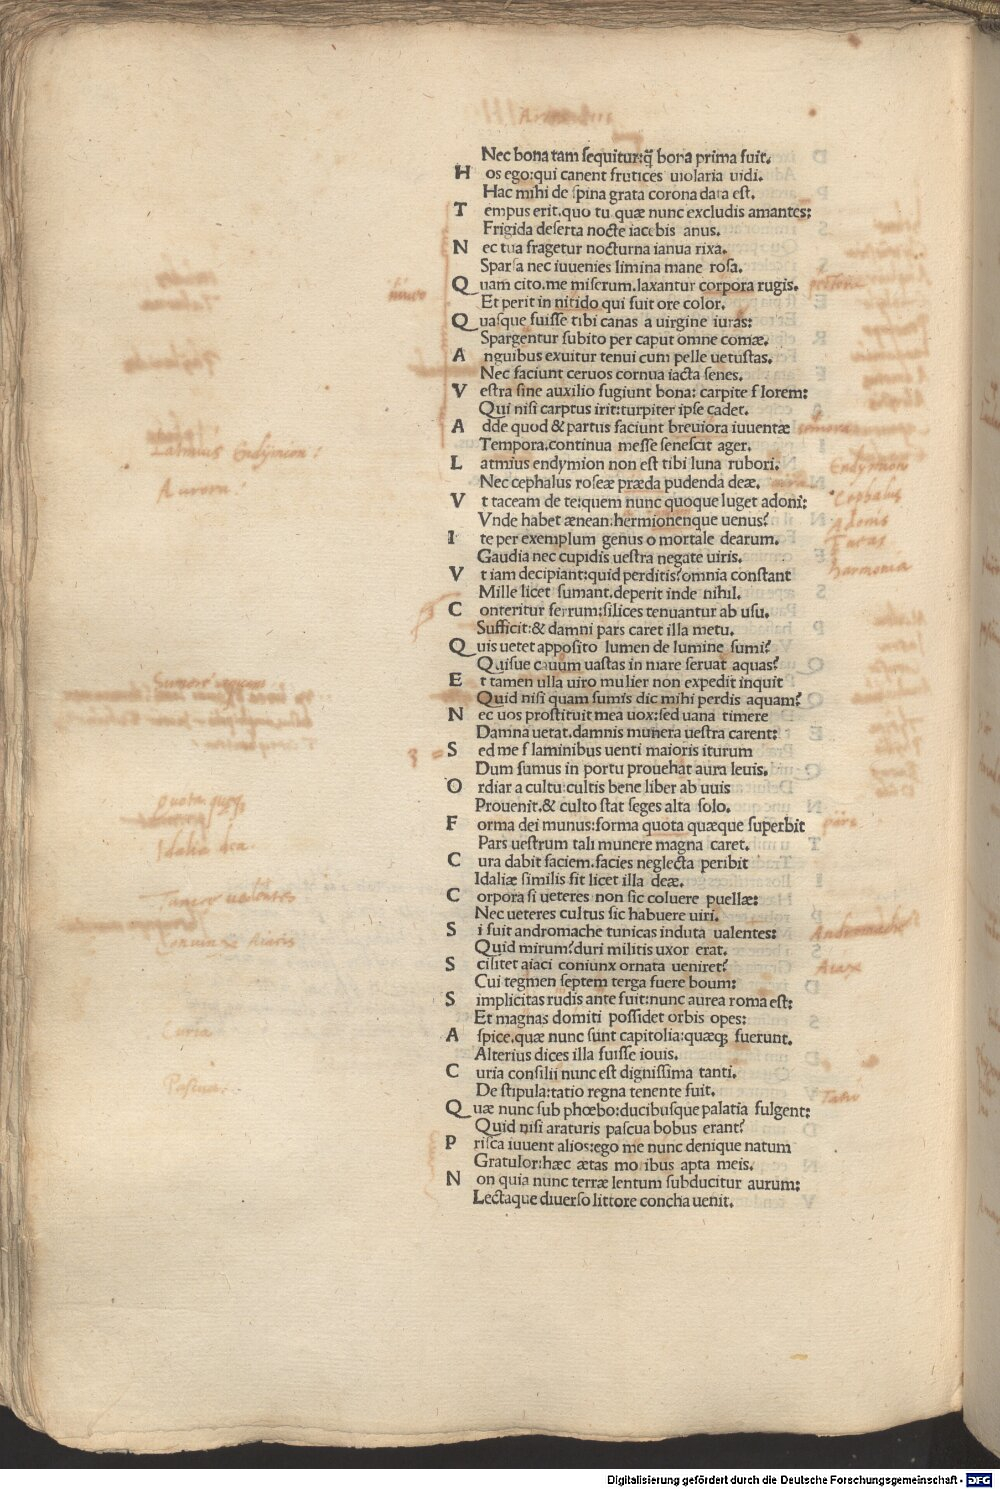 Nec bona tam sequitur:q̃ bona prima fuit.
H os ego:qui canent frutices uiolaria uidi.
Hac mihi de spina grata corona data est.
T empus erit.quo tu quæ nunc excludis amantes:
Frigida deserta nocte iacebis anus.
N ec tua fragetur nocturna ianua rixa.
Sparsa nec iuuenies limina mane rosa.
Q uam cito.me miserum.laxantur corpora rugis.
Et perit in nitido qui fuit ore color.
Q uasque fuisse tibi canas a uirgine iuras:
Spargentur subito per caput omne comæ.
A nguibus exuitur tenui cum pelle uetustas.
Nec faciunt ceruos cornua iacta senes.
V estra sine auxilio fugiunt bona: carpite florem:
Qui nisi carptus irit:turpiter ipse cadet.
A dde quod & partus faciunt breuiora iuuentæ
Tempora.continua messe senescit ager.
L atmius endymion non est tibi luna rubori.
Latmius Endymion:
Endymion
Nec cephalus roseæ præda pudenda deæ.
Aurora:
Cephalus
V t taceam de te:quem nunc quoque luget adoni:
Adonis
Vnde habet ænean:hermionenque uenus?
I te per exemplum genus o mortale dearum.
Gaudia nec cupidis uestra negate uiris.
harmonia
V t iam decipiant:quid perditis?omnia constant
Mille licet sumant.deperit inde nihil.
C onteritur ferrum:silices tenuantur ab usu.
Sufficit:& damni pars caret illa metu.
Q uis uetet apposito lumen de lumine sumi?
Quisue cauum uastas in mare seruat aquas?
E t tamen ulla uiro mulier non expedit inquit
Quid nisi quam sumis dic mihi perdis aquam?
N ec uos prostituit mea uox:sed uana timere
Damna uetat.damnis munera uestra carent:
S ed me flaminibus uenti maioris iturum
Dum sumus in portu prouehat aura leuis.
O rdiar a cultu:cultis bene liber ab uuis
Prouenit.& culto stat seges alta solo.
F orma dei munus:forma quota quæque superbit
Pars uestrum tali munere magna caret.
Idalia dea.
C ura dabit faciem.facies neglecta peribit
Idaliæ similis sit licet illa deæ.
C orpora si ueteres non sic coluere puellæ:
Nec ueteres cultus sic habuere uiri.
S i fuit andromache tunicas induta ualentes:
Quid mirum?duri militis uxor erat.
S cilitet aiaci coniunx ornata ueniret?
Aiax
Cui tegmen septem terga fuere boum:
S implicitas rudis ante fuit:nunc aurea roma est:
Et magnas domiti possidet orbis opes:
Curia
A spice.quæ nunc sunt capitolia:quæq; fuerunt.
Alterius dices illa fuisse iouis.
C uria consilii nunc est dignissima tanti.
De stipula:tatio regna tenente fuit.
Pascua:
Q uæ nunc sub phœbo:ducibusque palatia fulgent:
Quid nisi araturis pascua bobus erant?
P risca iuuent alios:ego me nunc denique natum
Gratulor:hæc ætas moribus apta meis.
N on quia nunc terræ lentum subducitur aurum:
Lectaque diuerso littore concha uenit.
Digitalisierung gefördert durch die Deutsche Forschungsgemeinschaft - DFG